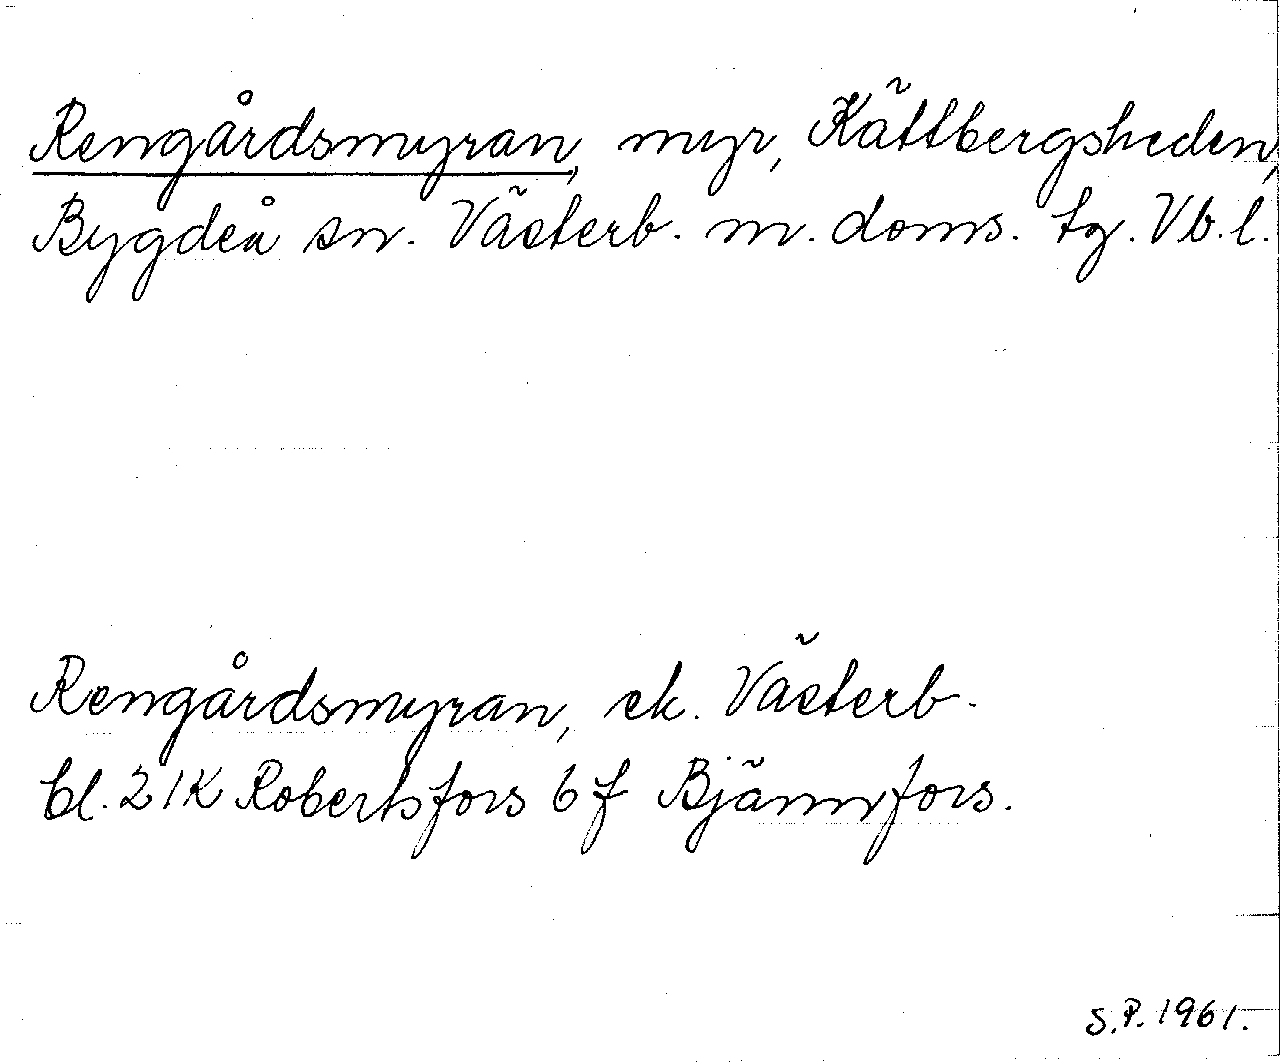 Rengårdsmyran, myr, Kättbergsheden,
Bygdeå sn. Västerb. m. doms. tg. Vb. l.
Rengårdsmyran, ek. Västerb.
bl. 21K Robertsfors 6 f Bjännfors.
S.P. 1961.